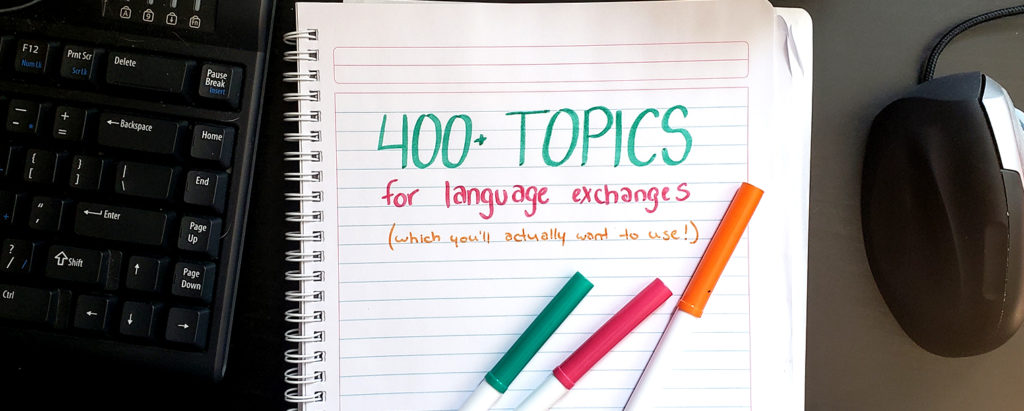 F12
Num Lk
Prnt Scr
Scr Lk
Delete
Pause
Break
Insert
Backspace
Home
End
Enter
Page
Up
Shift
Page
Down
Ctrl
400+ TOPICS
for language exchanges
(which you'll actually want to use!)